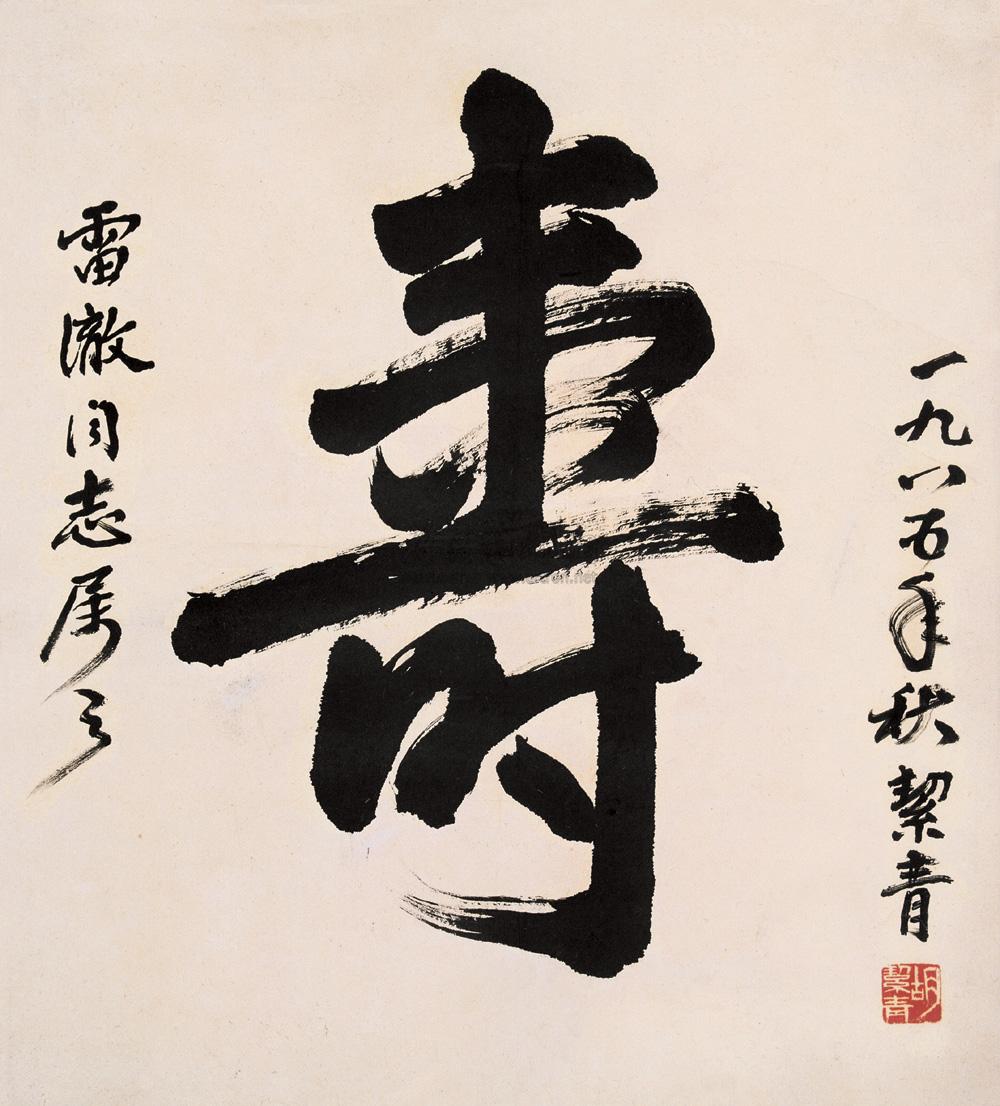 壽
一九八五年秋
絜青
胡絜青
雷澈同志属之